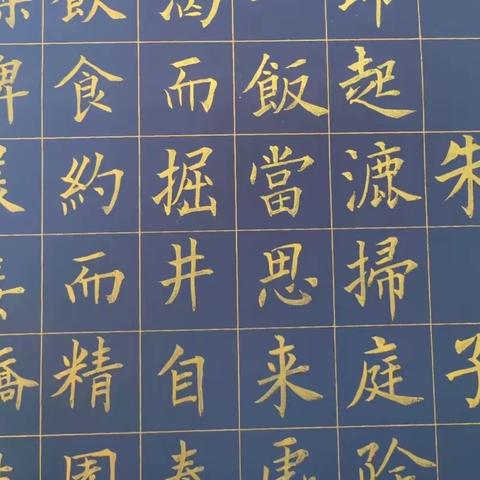 朱子
即起漉掃庭除
一飯當思来處
渴而掘井自奉
飲食約而精園